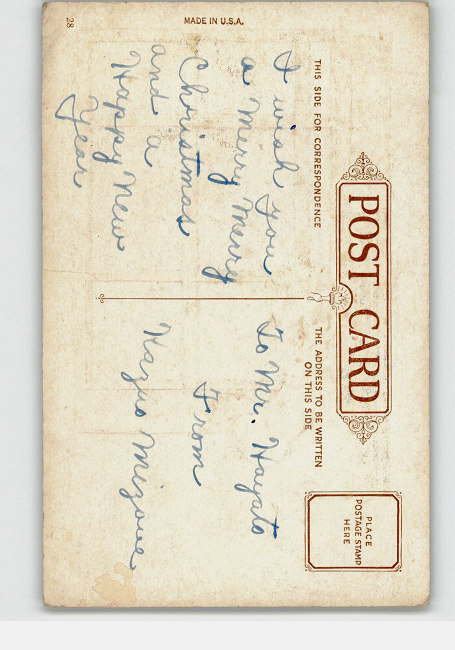 POST CARD
THIS SIDE FOR CORRESPONDENCE
THE ADDRESS TO BE WRITTEN
ON THIS SIDE
PLACE
POSTAGE STAMP
HERE
I wish you
a Merry Merry
Christmas
and a
Happy New
Year
To Mr. Hayato
From
Kazuo Mizoue
MADE IN U.S.A.
28